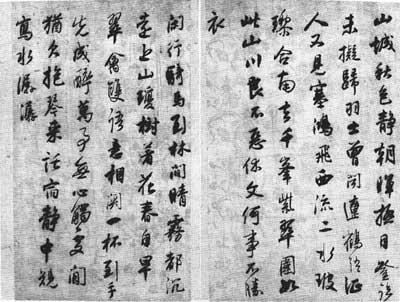 山城秋色静朝暉極目登臨
未擬歸羽士曾聞遼鶴語征
人又見塞鴻飛西流二水玻
瓈合南去千峯紫翠圍如
此山川良不惡休文何事不勝
衣
閑行騎馬到林間晴霧都沉
上山瓊樹著花春自早
翠禽雙語意相關一杯到手
先成醉萬事無心觸處閒
猶欠抱琴來託宿静中規
寫水潺潺